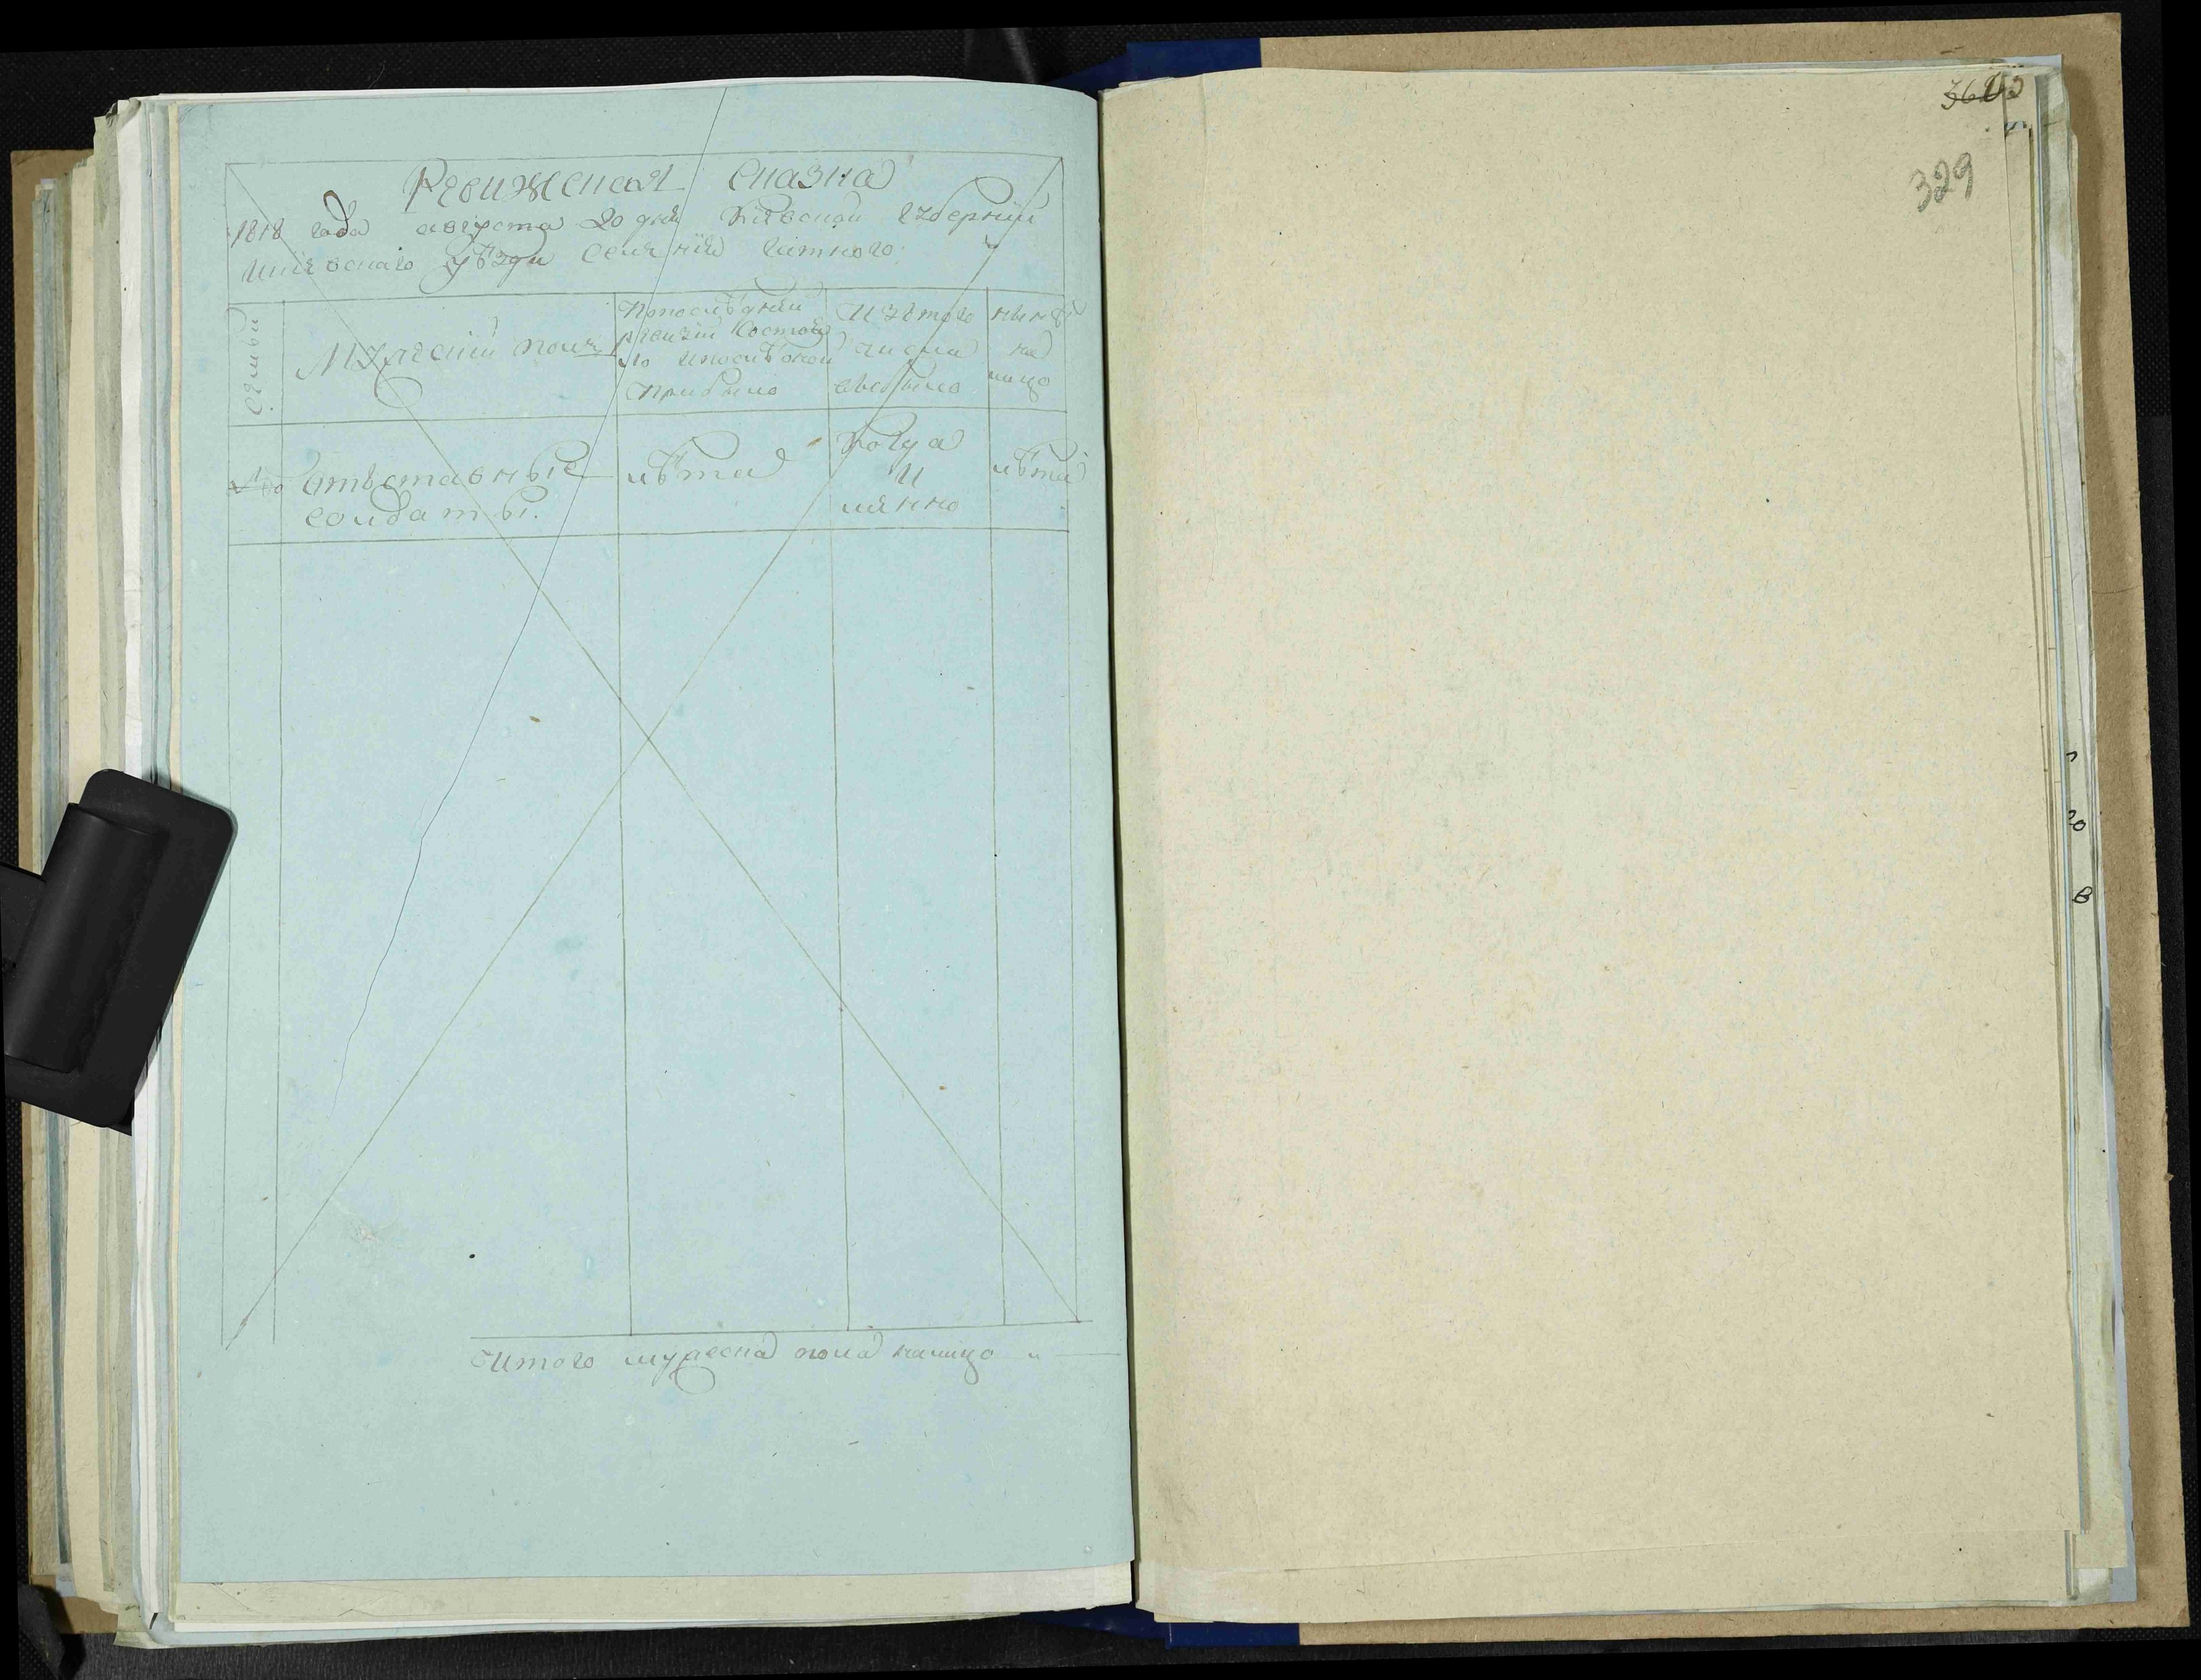 Ревижская сказка
1818 года августа 20 дня Киевской губернiи
Киевскаго уѣзда селенiя Гатного
семьи
Мужескiй полъ
Попослѣдней
ревизiи состоя
ло ипослѣ оной
прибыло
Изетого
числа
выбыло
нынѣ
на
лицо
№
отставные
солдаты.
лѣта
Когда
и
лѣта
Итого мужеска пола налицо "
329